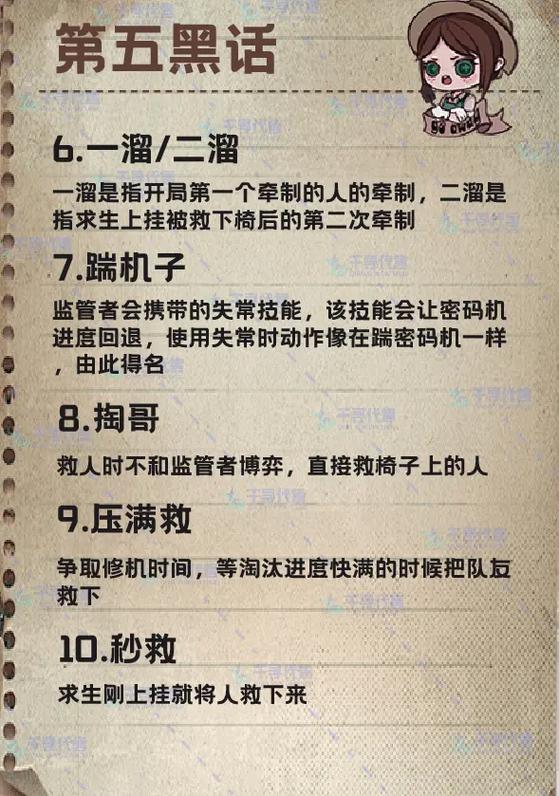 第五黑话
6.一溜/二溜
一溜是指开局第一个牵制的人的牵制，二溜是
指求生上挂被救下椅后的第二次牵制
7.踹机子
监管者会携带的失常技能，该技能会让密码机
进度回退，使用失常时动作像在踹密码机一样
，由此得名
8.掏哥
救人时不和监管者博弈，直接救椅子上的人
9.压满救
争取修机时间，等淘汰进度快满的时候把队友
救下
10.秒救
求生刚上挂就将人救下来
千寻代售